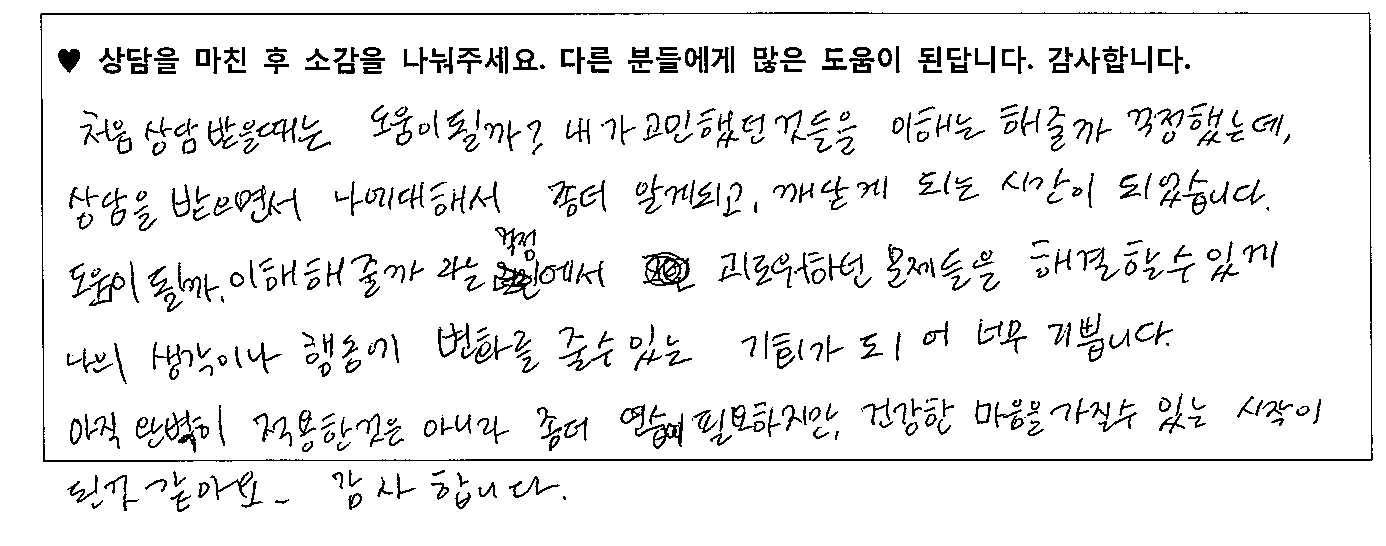 ♥ 상담을 마친 후 소감을 나눠주세요. 다른 분들에게 많은 도움이 된답니다. 감사합니다.
처음 상담 받을때는 도움이 될까? 내가 고민했던 것들을 이해는 해줄까 걱정했는데,
상담을 받으면서 나에대해서 좀더 알게되고, 깨닫게 되는 시간이 되었습니다.
도움이 될까, 이해해 줄까 라는 걱정에서 괴로워하던 문제들을 해결할수 있게
나의 생각이나 행동에 변화를 줄수 있는 기회가 되어 너무 기쁩니다.
아직 완벽히 적용한것은 아니라 좀더 연습이 필요하지만, 건강한 마음을 가질수 있는 시작이
된것 같아요_ 감사합니다.